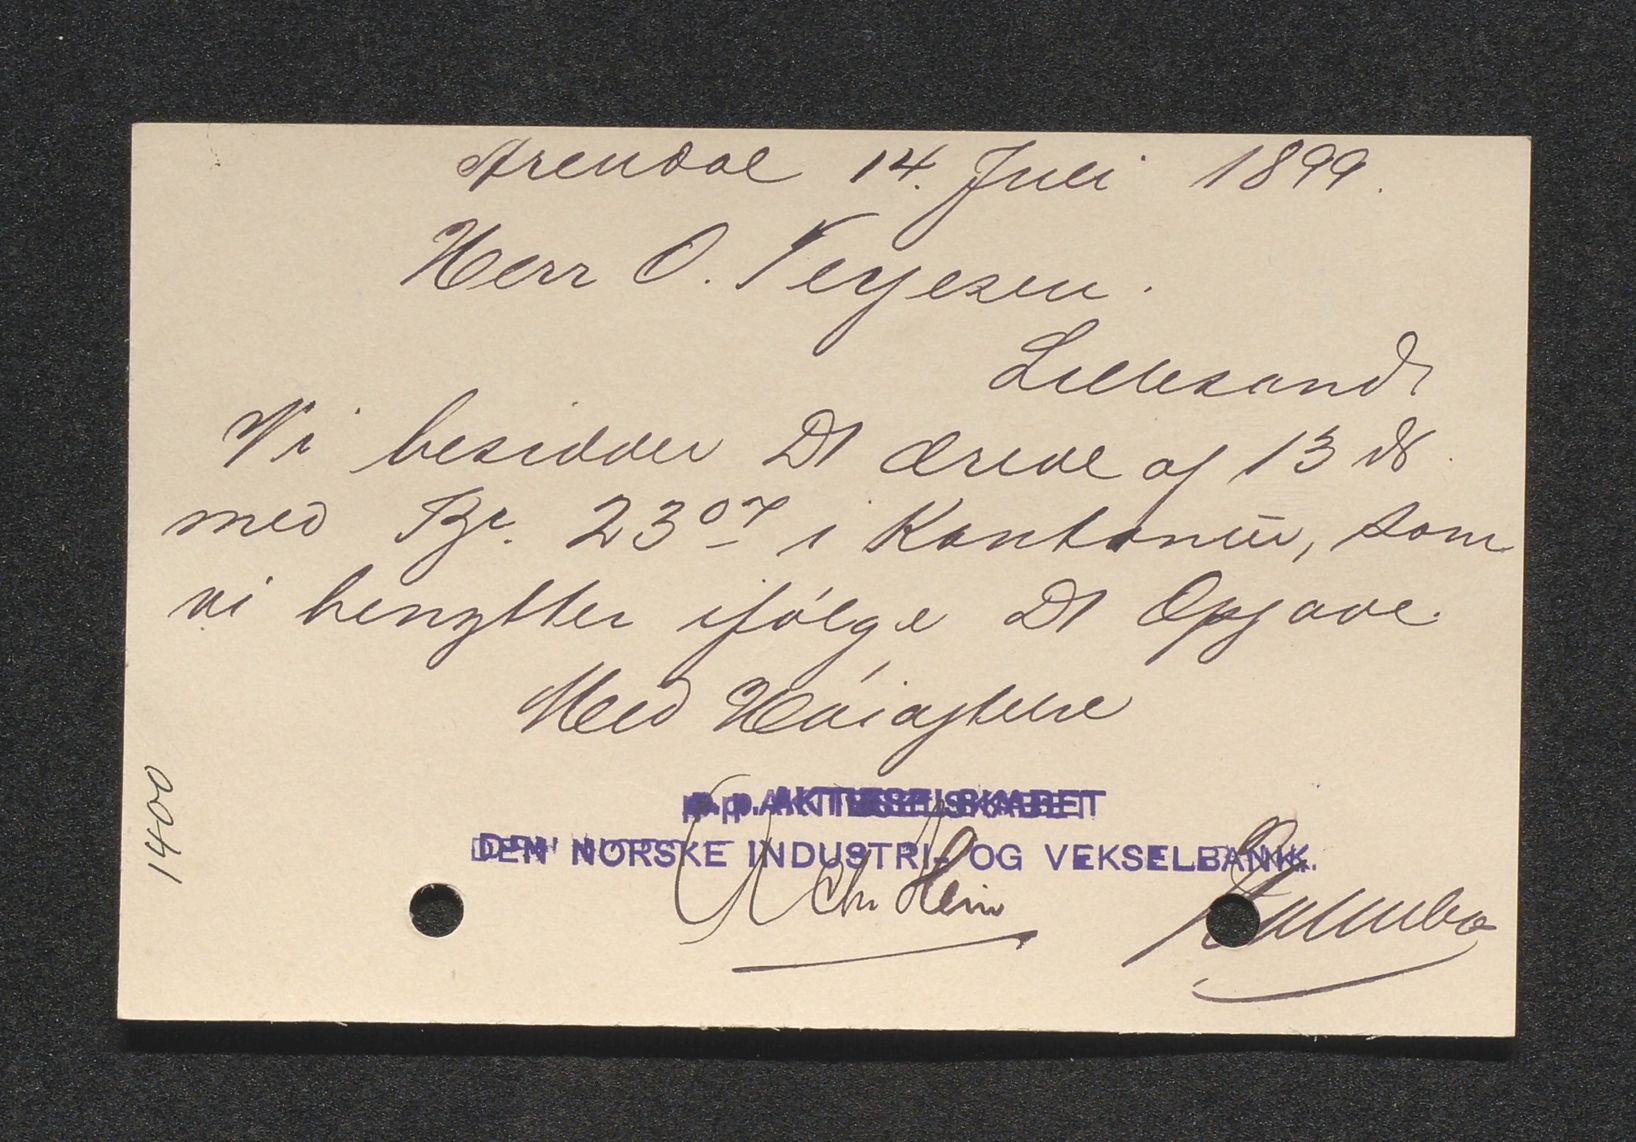 Arendal 14. Juli 1899.
Herr O. Terjesen.
Lillesand.
Vi besidder Dt ærede af 13 ds
med Kr. 23 07 i Kontanter, som
vi benytter ifølge Dt Opgave.
Med Høiagtelse
p.p. AKTIESELSKABET
DEN NORSKE INDUSTRI- OG VEKSELBANK.
Chr Hein
1400